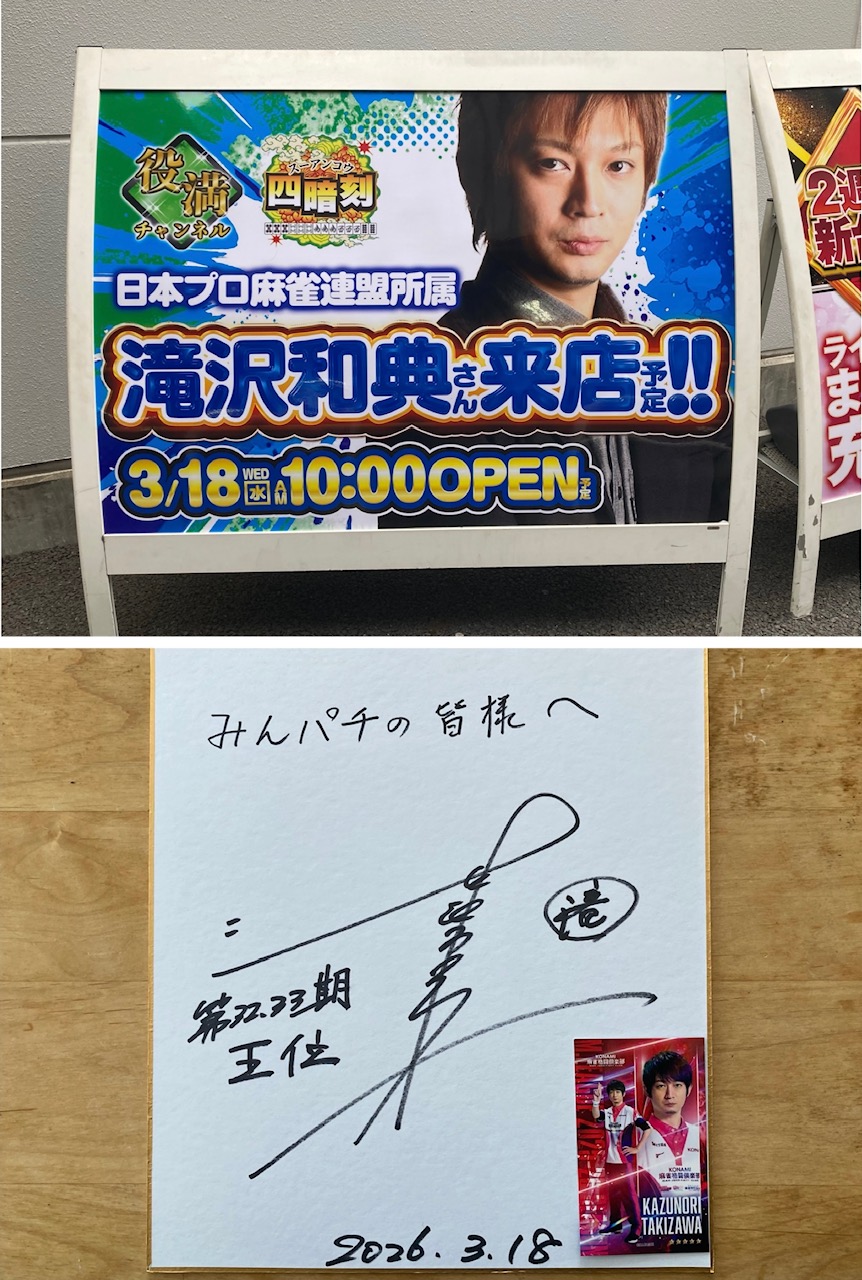 役満
チャンネル
スーアンコウ
四暗刻
日本プロ麻雀連盟所属
滝沢和典さん来店予定!!
3/18 WED 水 AM 10:00OPEN予定
2週
新台
ライ
ま
充
みんパチの皆様へ
滝
第32.33期
王位
KONAMI
麻雀格闘倶楽部
KONAMI
麻雀格闘倶楽部
KAZUNORI
TAKIZAWA
2026.3.18